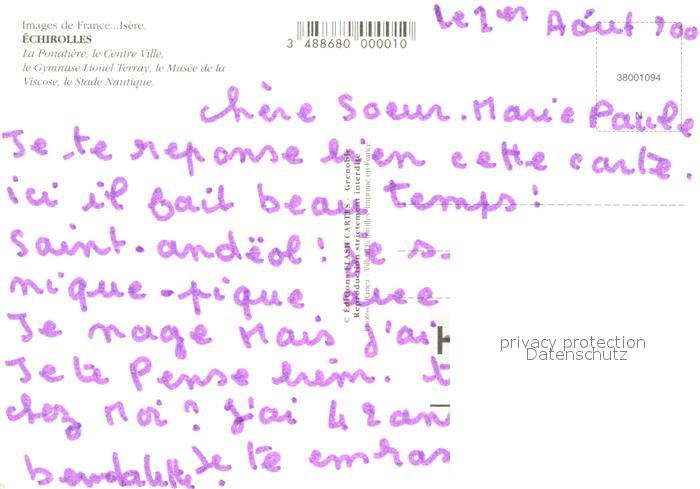 Images de France...Isère.
ÉCHIROLLES
La Ponatière, le Centre Ville,
le Gymnase Lionel Terray, le Musée de la
Viscose, le Stade Nautique.
3 488680 000010
Le 1er Aout 900
38001094
N
chère Soeur. Marie Paule
Je te reponse bien cette carte.
ici il fait beau temps!
Saint-andëol! Je s
nique-pique avec
Je nage Mais j'ai
Je te Pense bien. t
chez Moi? j'ai 42 an
Je te embras
© Éditions FLASH CARTES - Grenoble
Reproduction strictement interdite
Imprimé en France
H
privacy protection
Datenschutz